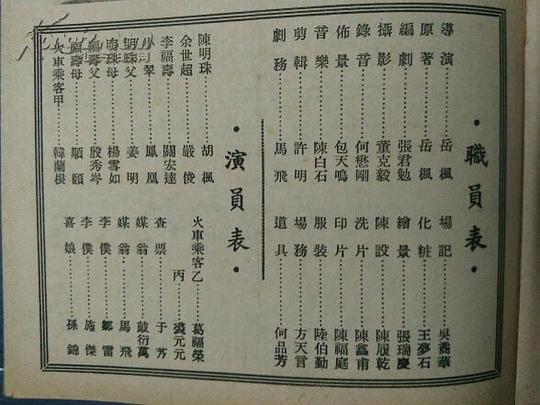 職員表
導演 岳楓 場記 華
原著 岳楓 化粧 王夢石
編劇 張君勉 繪景 張瑞慶
攝影 董克毅 陳設 陳履乾
錄音 何懋剛 洗片 陳鑫甫
佈景 包天鳴 印片 陳福庭
音樂 陳白石 服裝 陸伯勤
剪輯 許明 場務 方天言
劇務 馬飛 道具 何品芳
演員表
陳明珠 胡楓 火車乘客乙 葛福榮
余世超 嚴俊 丙 裘元元
李福壽 關宏達 查票 于
翠 鳳凰 媒翁 衍萬
明珠父 姜明 媒翁 馬飛
明珠母 楊雪如 李僕 鄒雷
福壽父 殷秀岑 李僕 施傑
福壽母 顧 喜娘 孫錦
火車乘客甲 韓蘭根